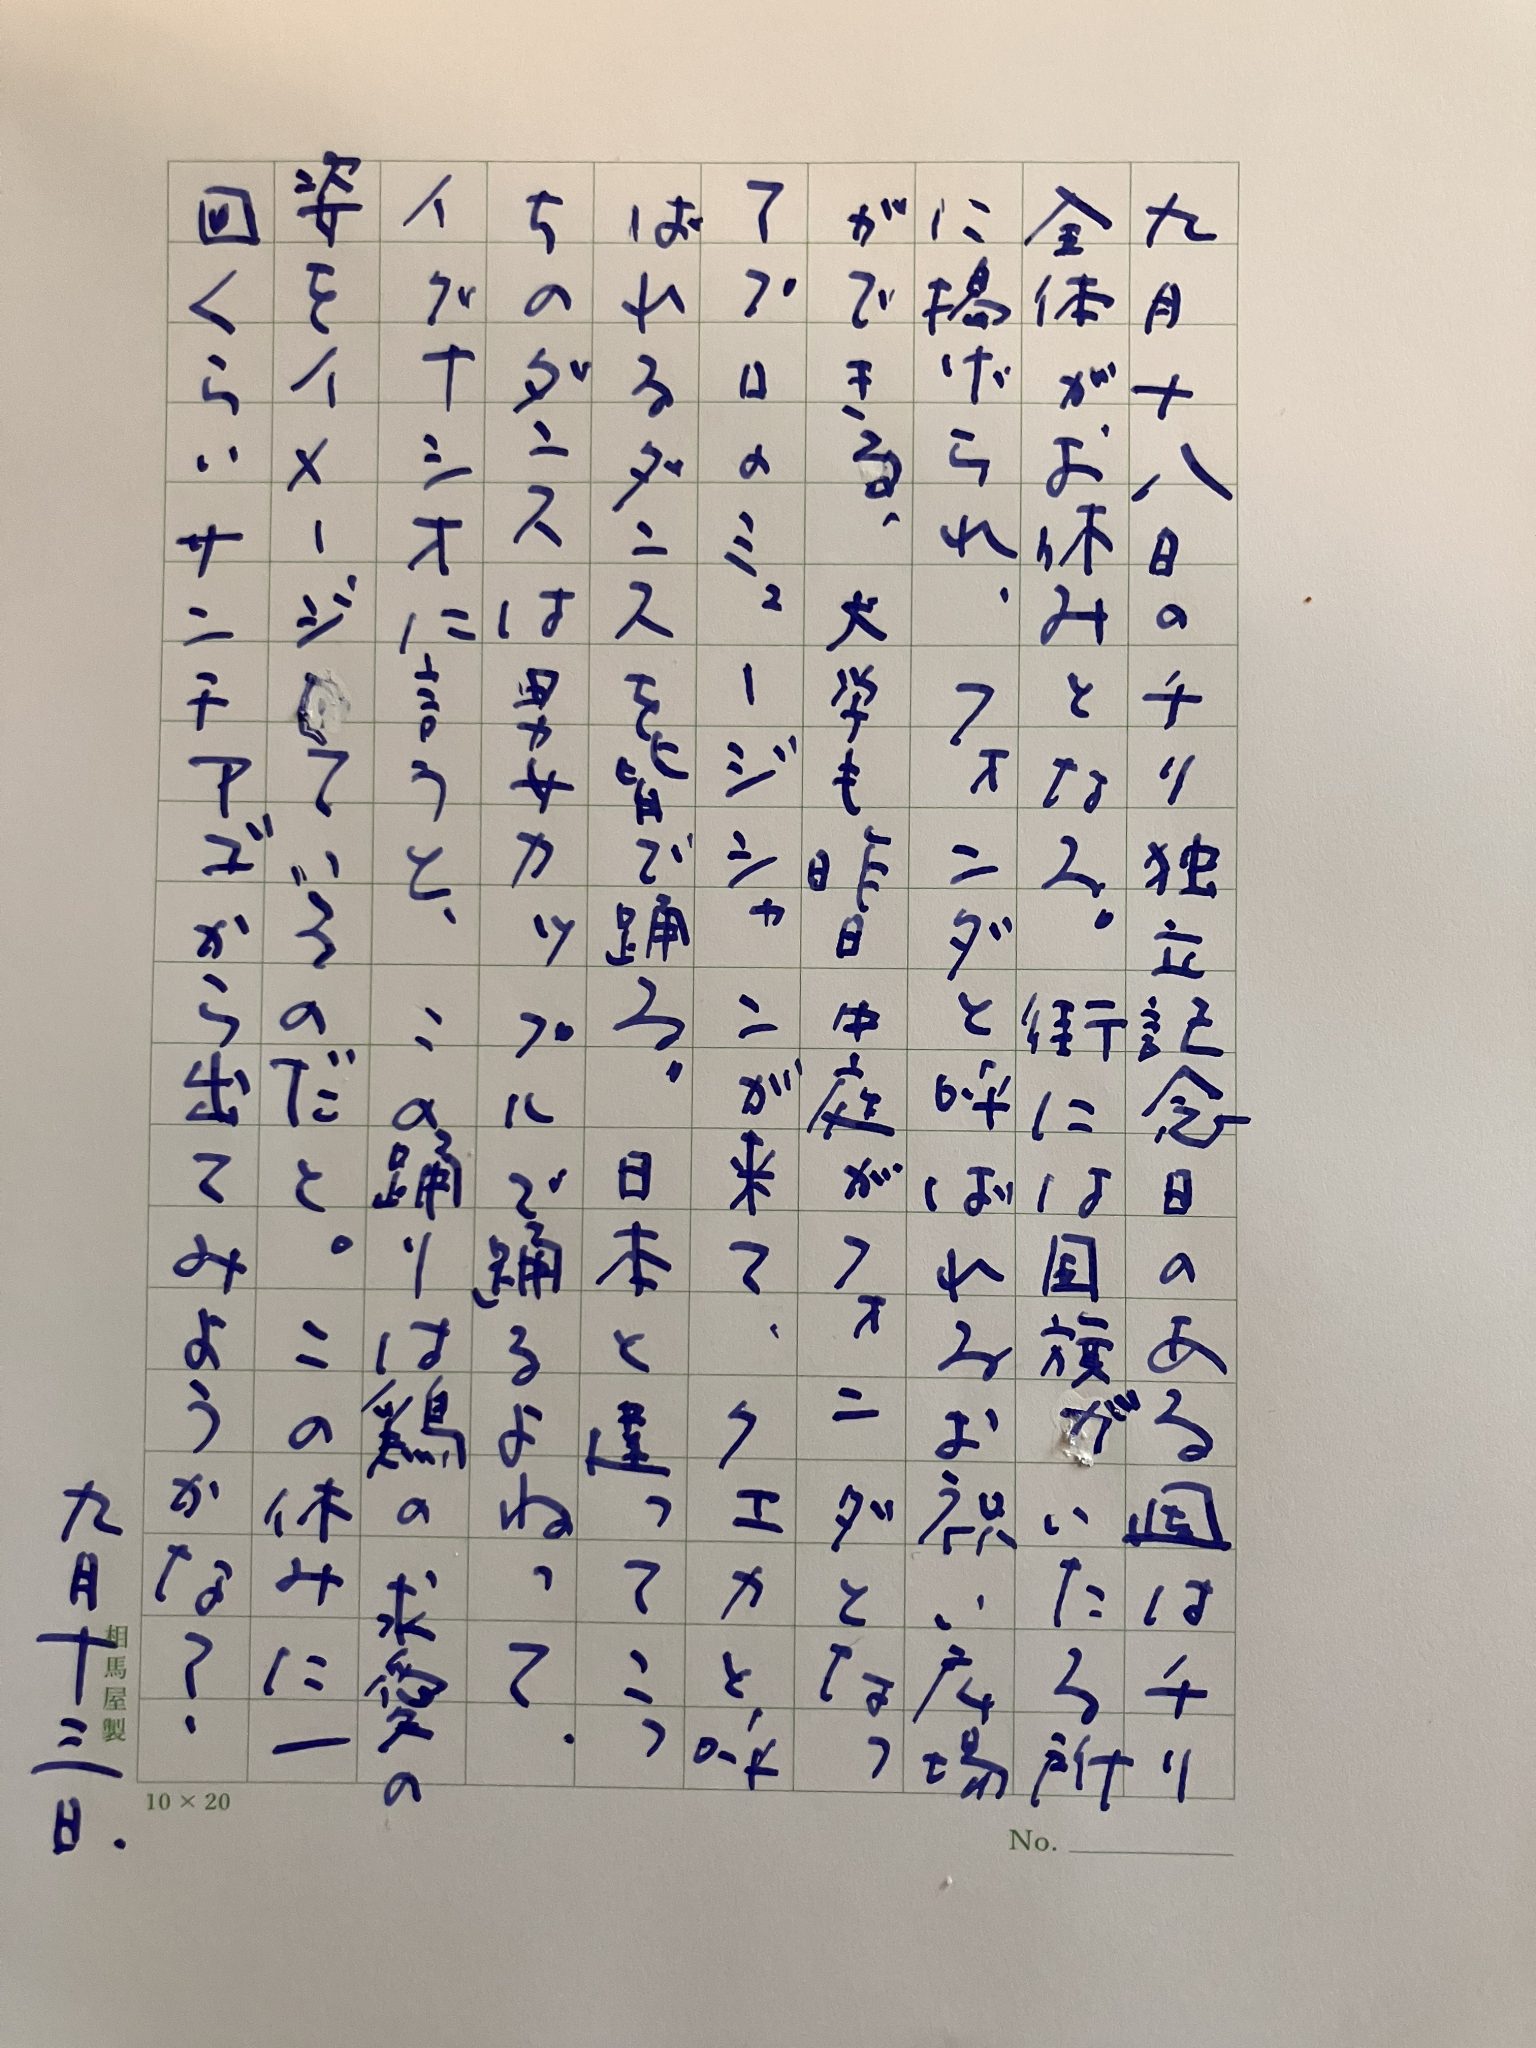 九月十八日のチリ独立記念日のある国はチリ
全体がお休みとなる。街には国旗がいたる所
に掲げられ、フォンダと呼ばれるお祭り広場
ができる、大学も昨日中庭がフォンダとなっ
てプロのミュージシャンが来て、クエカと呼
ばれるダンスを皆で踊る。日本と違ってこっ
ちのダンスは男女カップルで踊るよねって.
イグナシオに言うと、この踊りは鶏の求愛の
姿をイメージしているのだと。この休みに一
回くらいサンチアゴから出てみようかな?.
九月十三日.
相馬屋製
10×20
No.